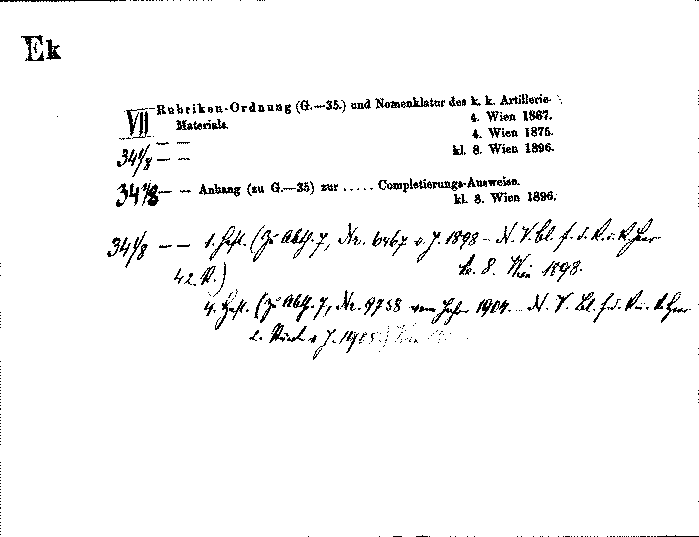 Ek
VII Rubriken-Ordnung (G.—35.) und Nomenklatur des k. k. Artillerie-
Materials. 4. Wien 1867.
— — 4. Wien 1875.
34 1/8 — — kl. 8. Wien 1896.
34 1/8 — — Anhang (zu G.—35) zur ..... Completierungs-Ausweise.
kl. 8. Wien 1896.
34 1/8 — — 1. Heft. (Zu Abth. 7, Nr. 6467 v. J. 1898 – N. V. bl. f. d. k. u. k. Heer
42. St.) kl. 8. Wien 1898.
4. Heft. (Zu Abth. 7, Nr. 9758 vom Jahre 1904. – N. V. Bl. f. d. k. u. k. Heer
2. Stück v. J. 1905.) Wien